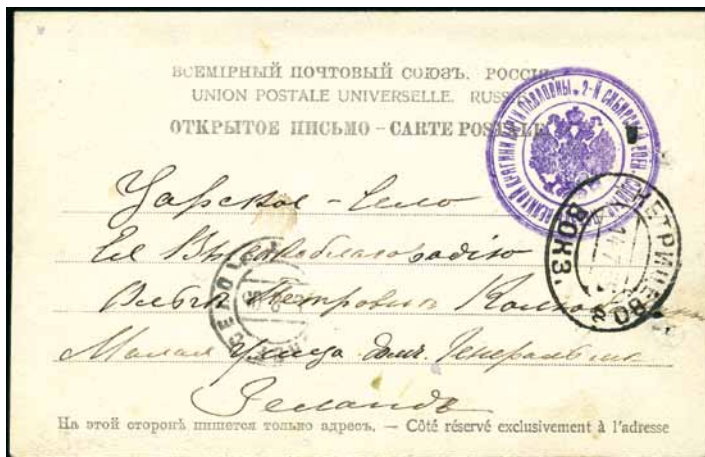 ВСЕМІРНЫЙ ПОЧТОВЫЙ СОЮЗЪ. РОССІЯ
UNION POSTALE UNIVERSELLE. RUSSIE
ОТКРЫТОЕ ПИСЬМО – CARTE POSTALE
ВЕЛИКОЙ КНЯГИНИ МАРІИ ПАВЛОВНЫ. 2-Й СИБИРСКІЙ ВОЕН.
Царское – Село
ВОКЗ.
Ея Высокоблагородію
Ольгѣ Петровнѣ
СЕЛО
Малая Улица дом. Генеральши
На этой сторонѣ пишется только адресъ. — Côté réservé exclusivement à l'adresse